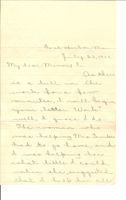 July 23, 1911
My dear Mommy:
As there
is a lull in the
work for a few
minutes, I will begin
your letter. Work?
well, I guess I do.
The woman who
was helping Mrs.
had to go home, and
I was helping her
what little I could
when she suggested
that I help her all